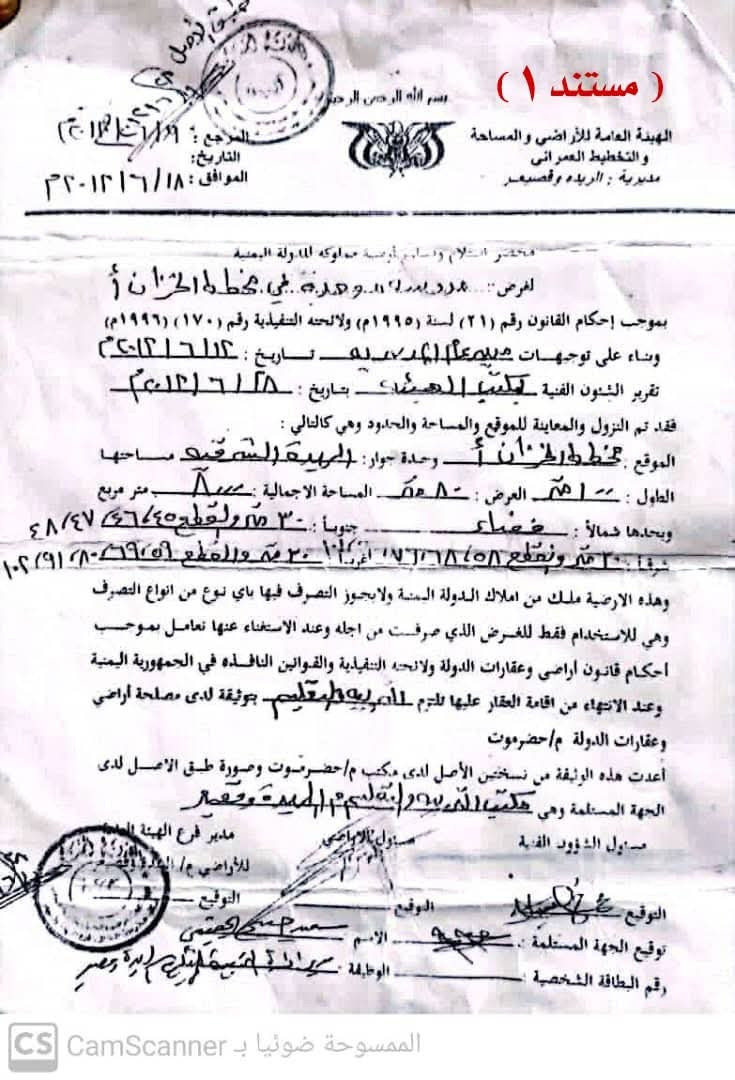 ( مستند ١ )
بسم الله الرحمن الرحيم
الهيئة العامة للأراضي والمساحة
والتخطيط العمراني
مديرية : الريده وقصيعر
المرجع :
التاريخ :
الموافق : ٢٠١٢/٦/١٨م
محضر استلام وتسليم أرضية مملوكة للدولة اليمنية
لغرض : في مخطط الخزان أ
بموجب إحكام القانون رقم (٢١) لسنة (١٩٩٥م) ولائحته التنفيذية رقم (١٧٠) (١٩٩٦م)
وبناء على توجيهات مدير عام المديرية تاريخ : ٢٠١٢/٦/١٢م
تقرير الشئون الفنية بمكتب الهيئة بتاريخ : ٢٠١٢/٦/١٨م
فقد تم النزول والمعاينة للموقع والمساحة والحدود وهي كالتالي :
الموقع : مخطط الخزان أ وحدة جوار : الريدة الشرقية مساحتها
الطول : ١٠٠ متر العرض : ٨٠ متر المساحة الاجمالية : ٨٠٠٠ متر مربع
ويحدها شمالاً : فضاء جنوباً : ٣٠ متر والقطع ٤٥/٤٦/٤٧/٤٨
شرقاً : ٢٠ متر والقطع ٥٨/٦٨ غرباً : ٣٠ متر والقطع ٥٩/٦٩/٨٠/٩١/١٠٢
وهذه الارضية ملك من املاك الدولة اليمنية ولايجوز التصرف فيها باي نوع من انواع التصرف
وهي للاستخدام فقط للغرض الذي صرفت من اجله وعند الاستغناء عنها تعامل بموجب
أحكام قانون أراضي وعقارات الدولة ولائحته التنفيذية والقوانين النافذه في الجمهورية اليمنية
وعند الانتهاء من اقامة العقار عليها تلتزم التربية والتعليم بوثيقة لدى مصلحة أراضي
وعقارات الدولة م/حضرموت
أعدت هذه الوثيقة من نسختين الأصل لدى مكتب م/حضرموت وصورة طبق الاصل لدى
الجهة المستلمة وهي مكتب التربية والتعليم م الريدة وقصيعر
مسئول الشؤون الفنية
مسئول الاراضي
مدير فرع الهيئة العامة
للأراضي م/
التوقيع
التوقيع
التوقيع
توقيع الجهة المستلمة : الاسم
رقم البطاقة الشخصية : الوظيفة :
CS CamScanner الممسوحة ضوئيا بـ